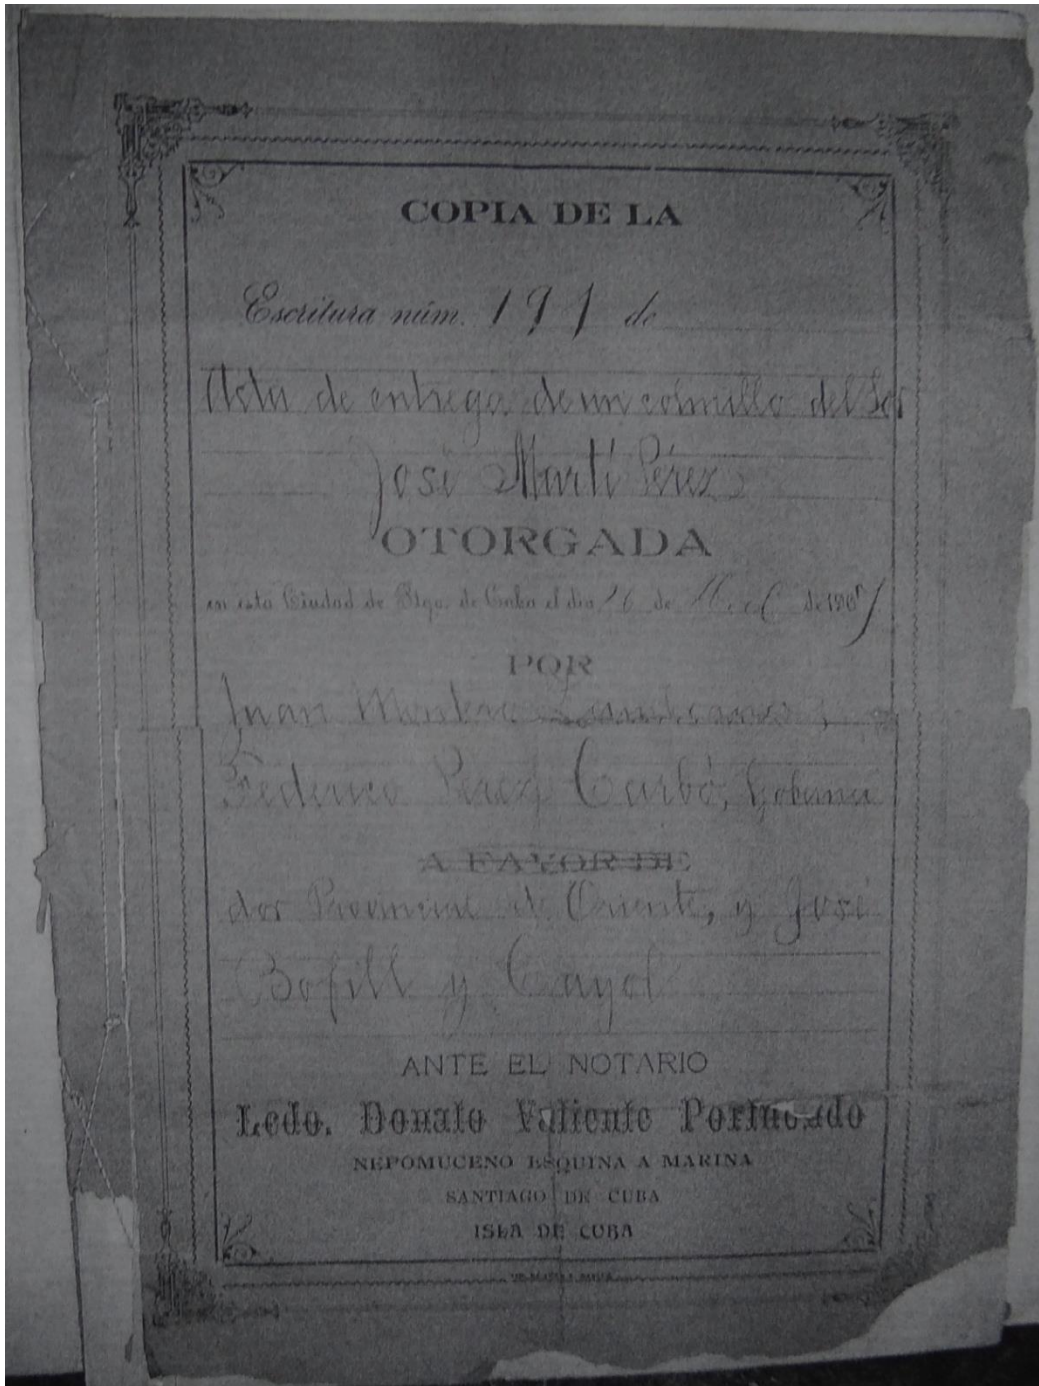 COPIA DE LA
Escritura núm. 191 de
Acta de entrega de un colmillo del Sor
José Martí Pérez
OTORGADA
en esta Ciudad de Stgo. de Cuba el dia 26 de de 1907
POR
Juan Montero
Federico Pérez Carbó, Goberna
A FAVOR DE
dor Provincial de Oriente, y José
Bofill y Cayol
ANTE EL NOTARIO
Ledo. Donato Valiente Portuondo
NEPOMUCENO ESQUINA A MARINA
SANTIAGO DE CUBA
ISLA DE CUBA